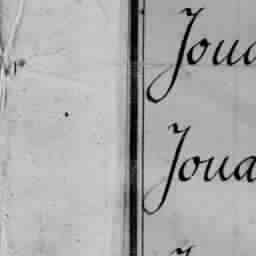 Joua
Joua